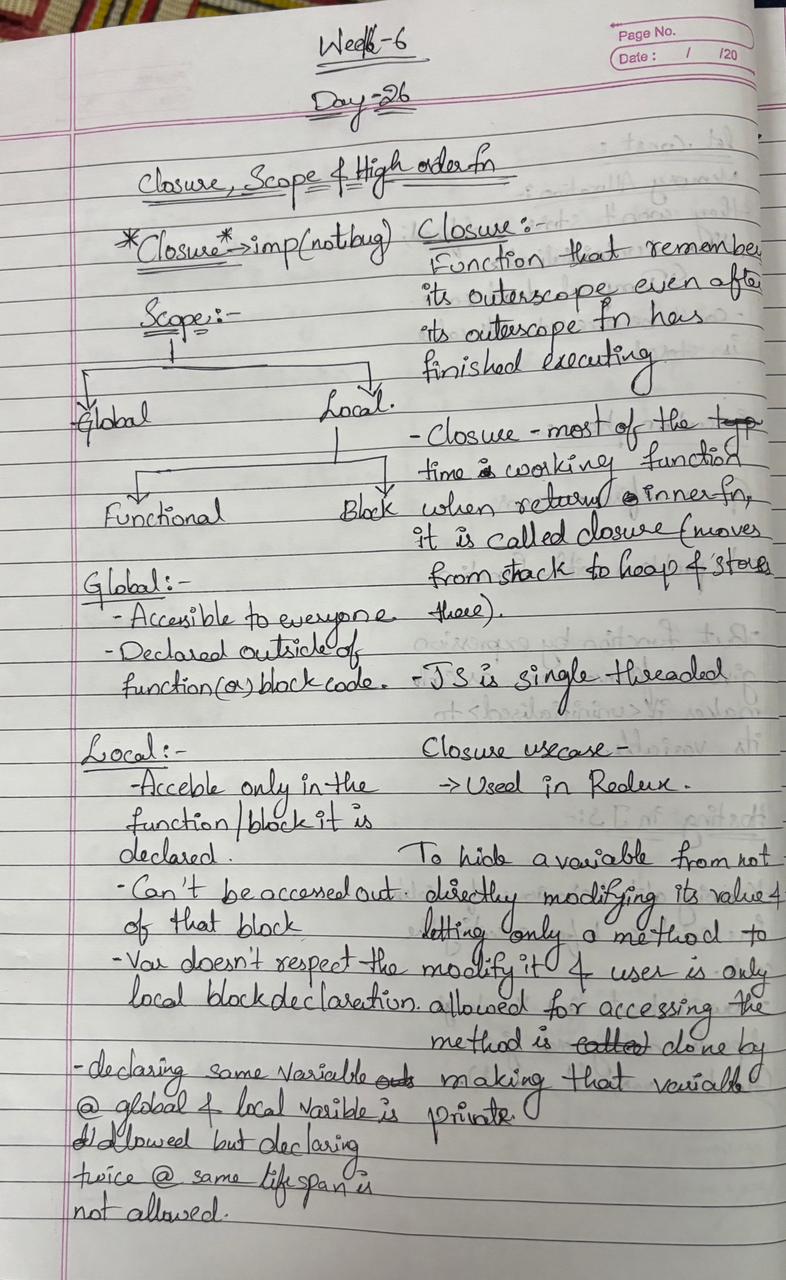 Page No.
Date : / /20
Week-6
Day-26
Closure, Scope & High order fn
*Closure* → imp(not bug)
Scope:-
Global
Local.
Functional
Block
Global:-
- Accessible to everyone.
- Declared outside of
function(or) block code.
Local:-
- Acceble only in the
function/block it is
declared.
- Can't be accessed out
of that block
- Var doesn't respect the
local block declaration.
- declaring same variable
@ global & local varible is
allowed but declaring
twice @ same life span is
not allowed.
Closure:-
Function that remember
its outerscope even after
its outerscope fn has
finished executing
- Closure - most of the
time is working function
when return inner fn,
it is called closure (moves
from stack to heap & stores
there).
- JS is single threaded
Closure usecase -
→ Used in Redux.
To hide a variable from not
directly modifying its value &
letting only a method to
modify it & user is only
allowed for accessing the
method is called done by
making that variable
private.